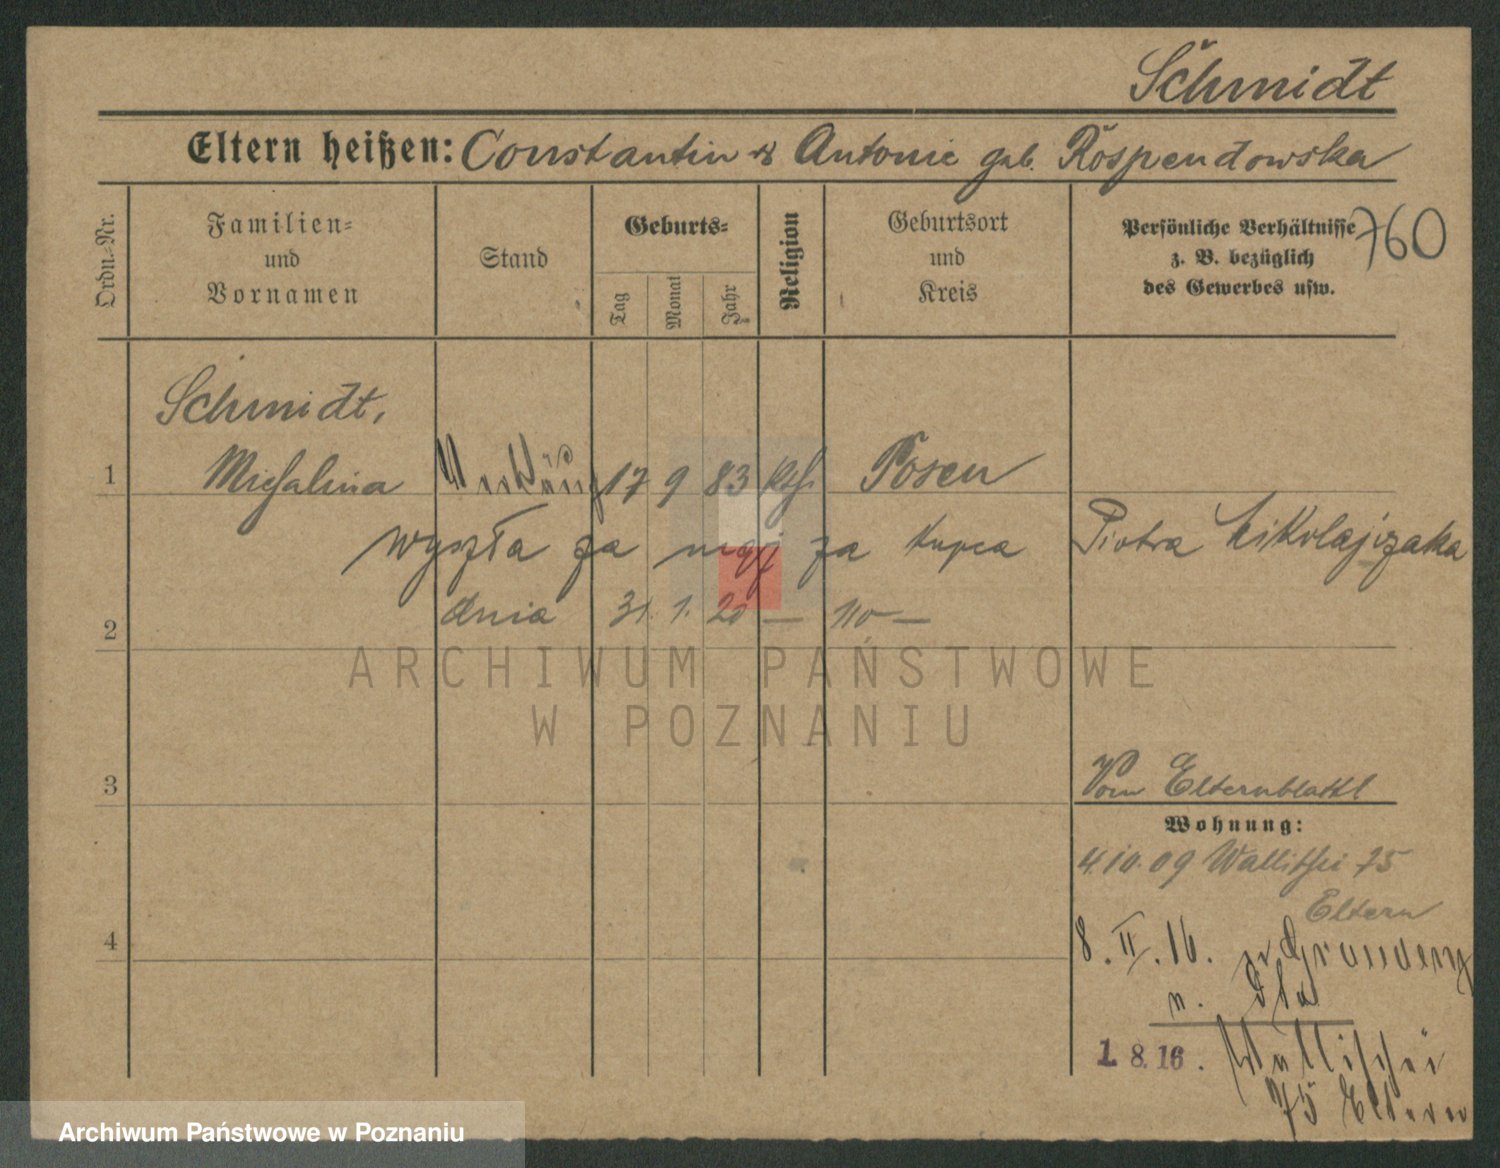 Schmidt
Eltern heißen: Constantin & Antonie geb. Rospendowska
Ordn=Nr.
Familien=
und
Vornamen
Stand
Geburts=
Tag
Monat
Jahr
Religion
Geburtsort
und
Kreis
Persönliche Verhältnisse
z. B. bezüglich
des Gewerbes usw.
760
Schmidt,
1 Michalina 17 9 83 kth. Posen
wyszła za mąż za kupca Piotra Mikolajczaka
2 dnia 31. 1. 20 —
3
Vom Elternblattl
Wohnung:
4.10.09 Wallischei 75
Eltern
4
8. II. 16.
1. 8. 16. Wallischei
75 Eltern
ARCHIWUM PAŃSTWOWE
W POZNANIU
Archiwum Państwowe w Poznaniu